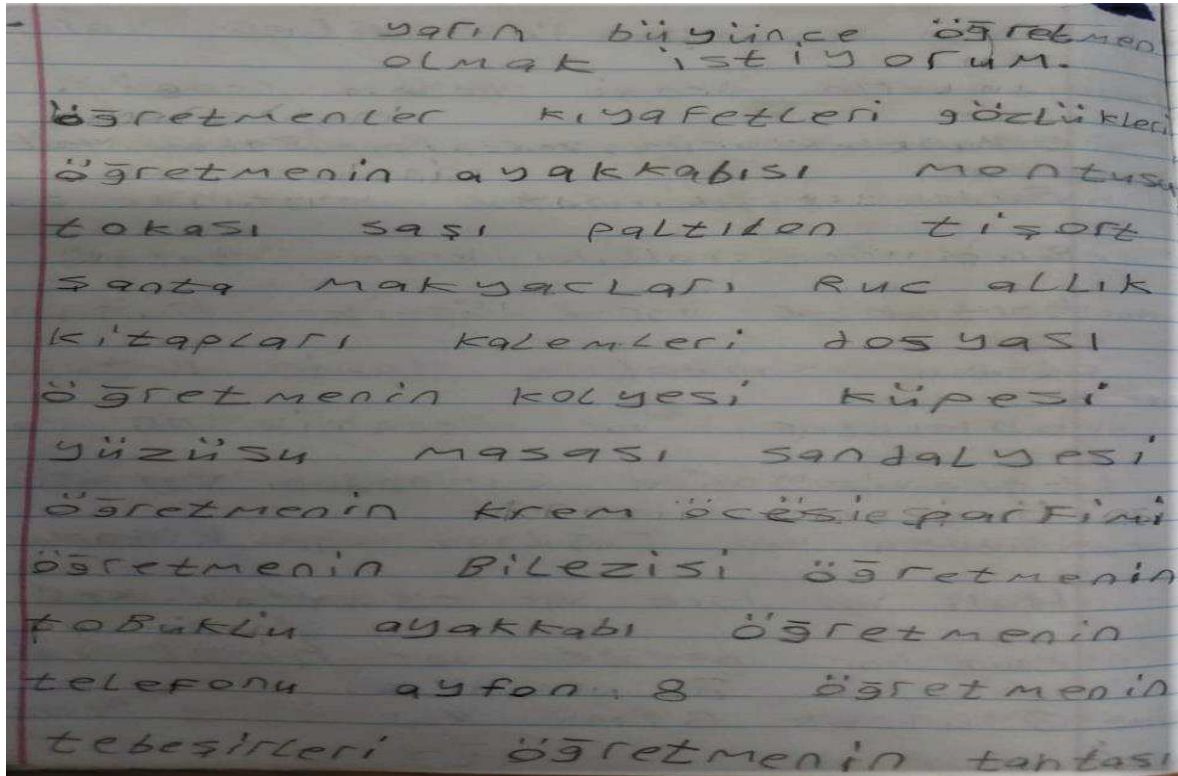 yarın büyünce öğretmen
olmak istiyorum.
öğretmenler kıyafetleri göclükleri
öğretmenin ayakkabısı montusu
tokası saşı paltılon tişort
şanta makyacları Ruc allık
kitapları kalemleri dosyası
öğretmenin kolyesi küpesi
yüzüsu masası sandalyesi
öğretmenin krem parfimi
öğretmenin Bilezisi öğretmenin
toBuklu ayakkabı öğretmenin
telefonu ayfon 8 öğretmenin
tebeşirleri öğretmenin tahtası